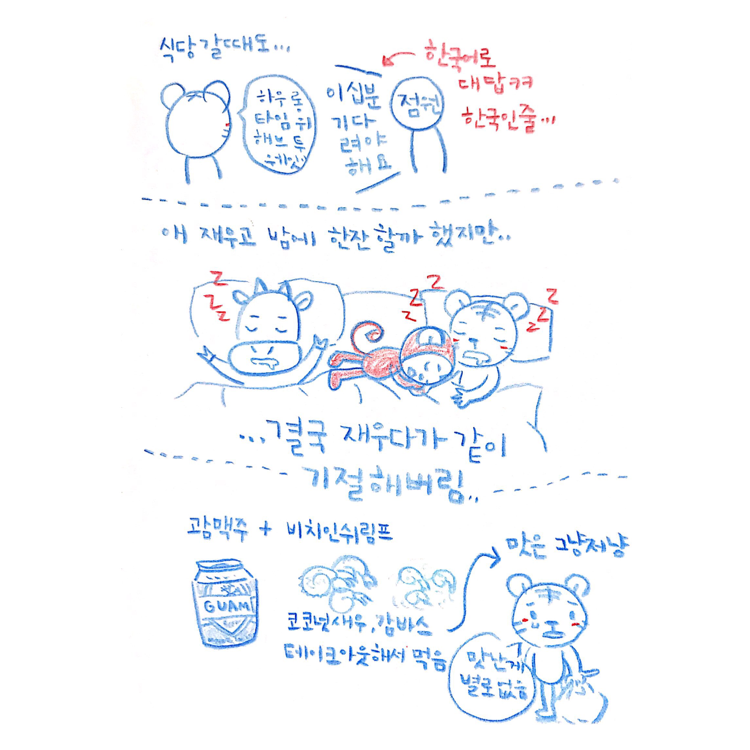 식당 갈때도...
한국어로
대답ㅋㅋ
한국인줄...
하우 롱
타임 위
해브 투
웨잇
이십분
기다
려야
해요
점원
애 재우고 밤에 한잔 할까 했지만..
z
z
zz
z
z
z
z
z
zz
...결국 재우다가 같이
기절해버림..
괌맥주 + 비치인쉬림프
맛은 그냥저냥
GUAM
코코넛새우, 감바스
테이크아웃해서 먹음
맛난게
별로없음